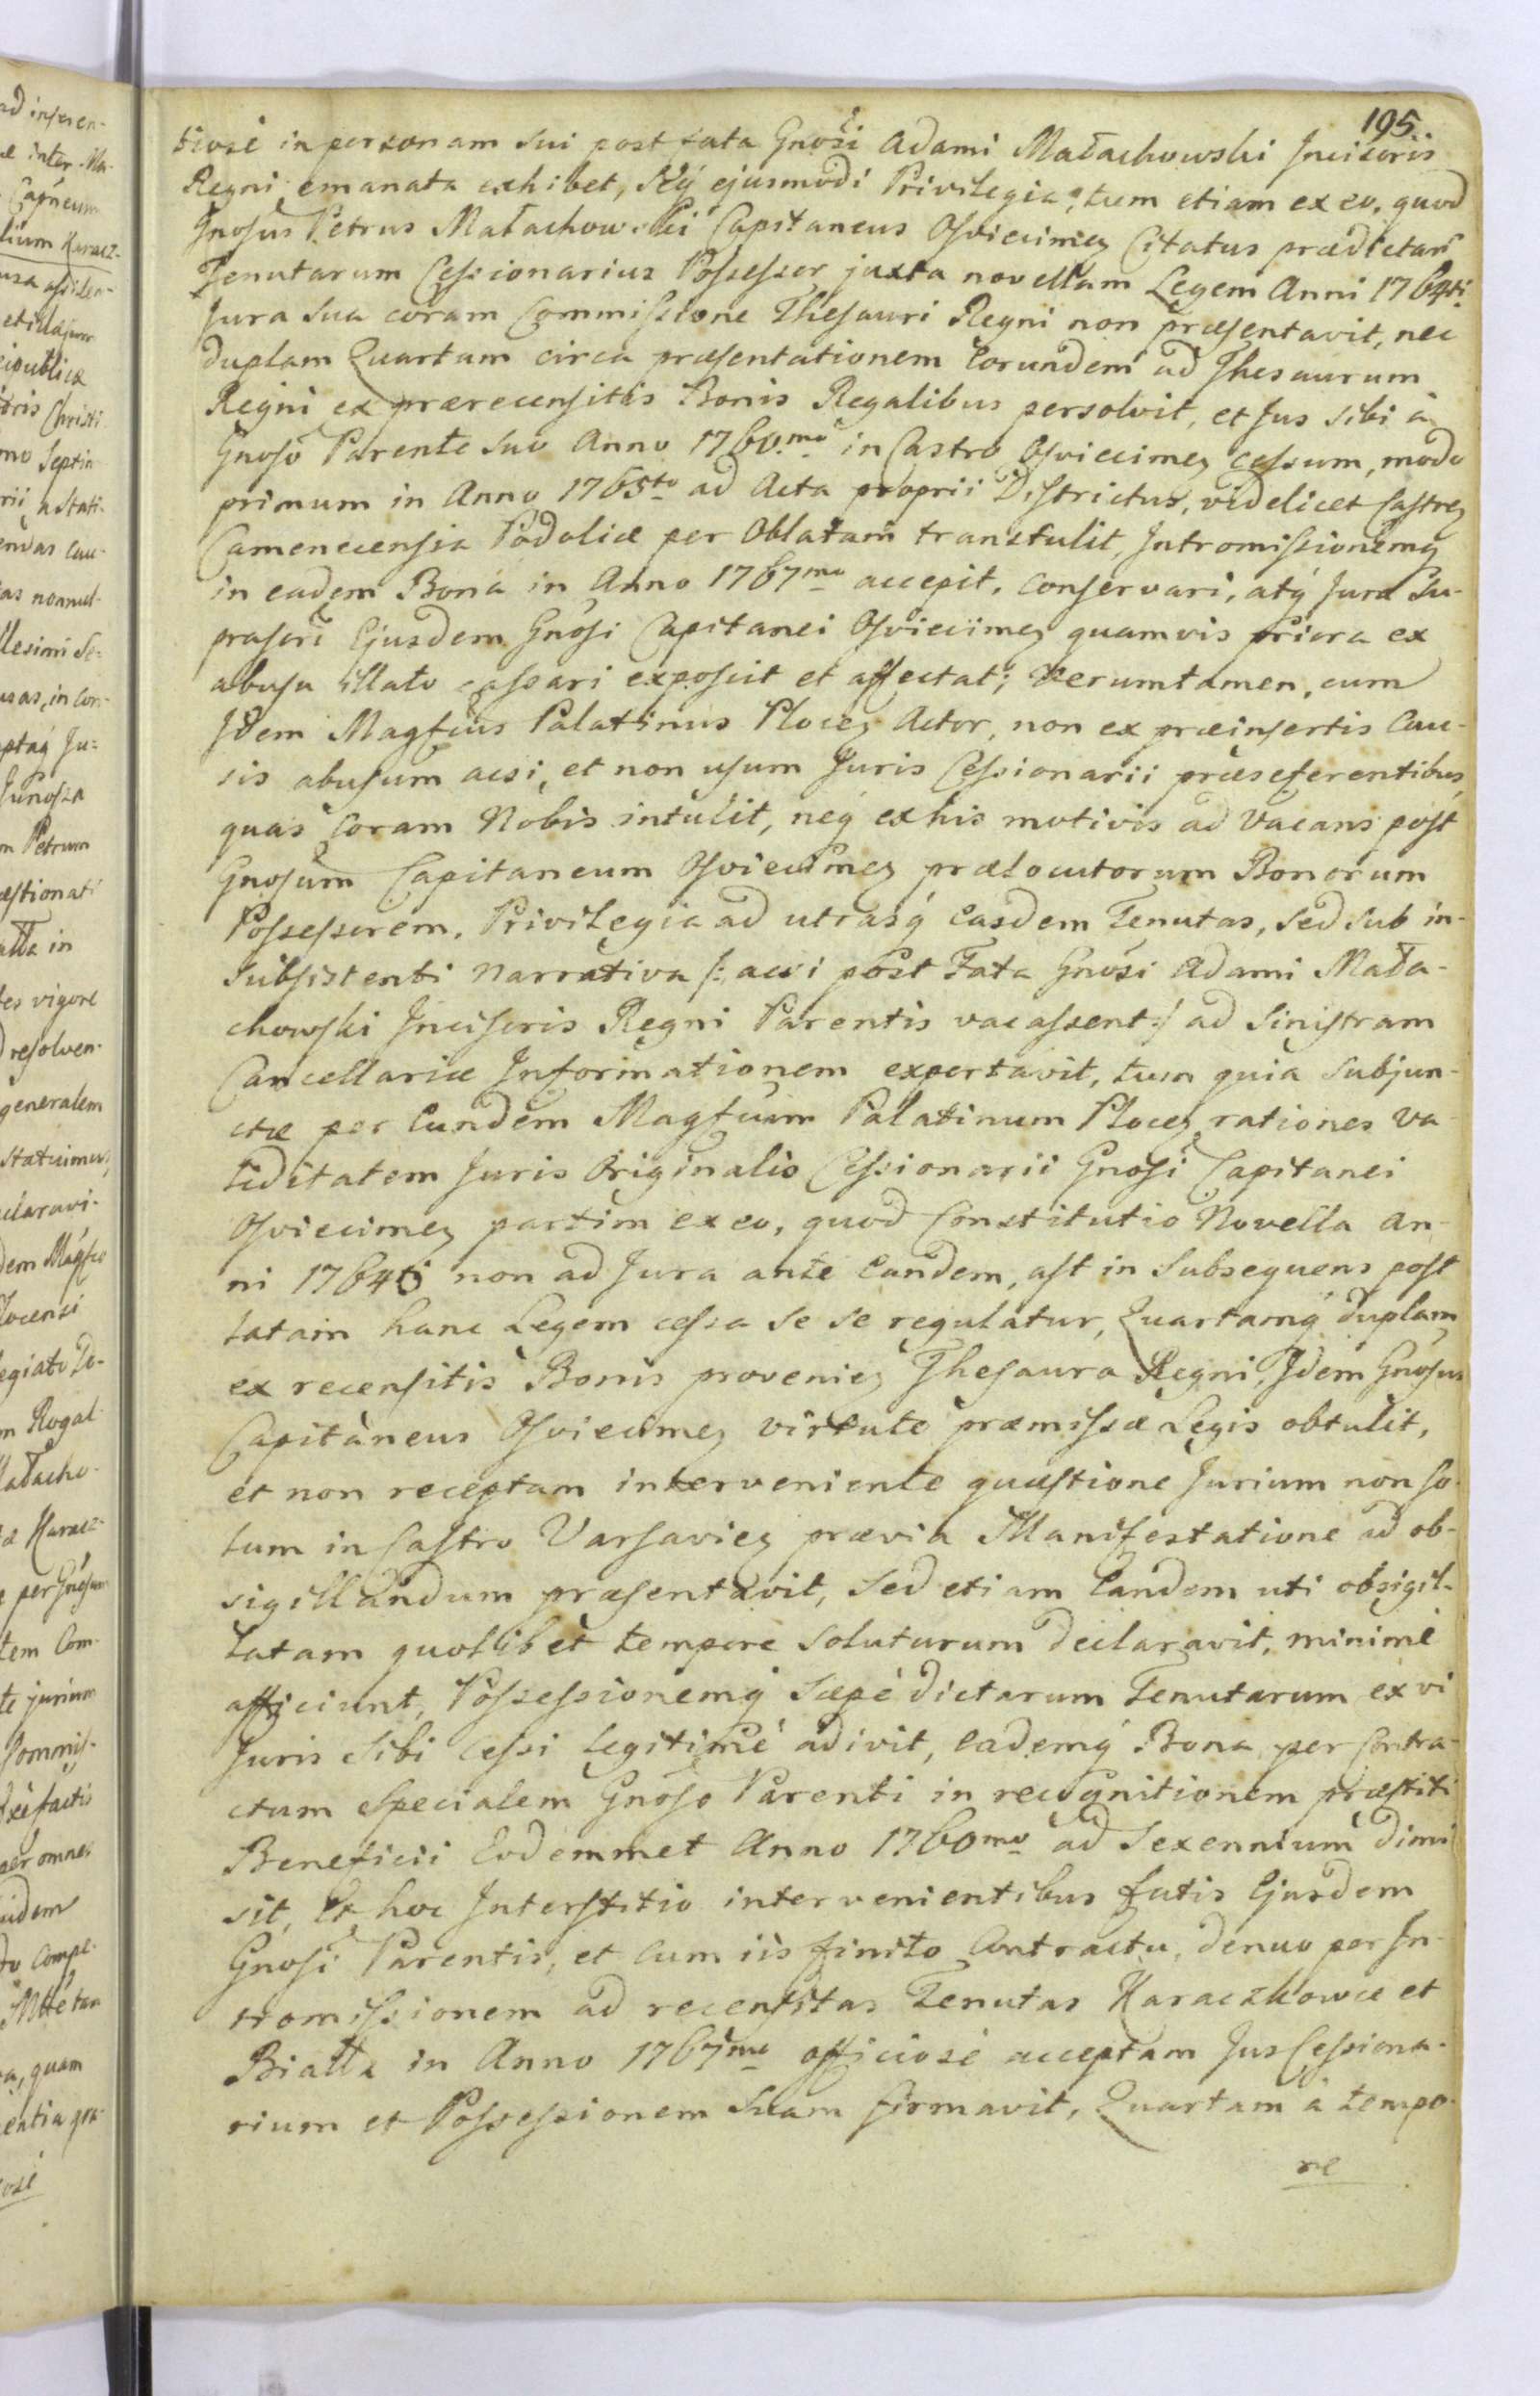 195.
tiose in personam sui post fata Gnosi Adami Małachowski Incisoris
Regni emanata exhibet, ejusmodi Privilegia, tum etiam ex eo, quod
Gnosus Petrus Małachowski Capitaneus Osviecimen Citatus prædictarum
Tenutarum Cessionarius Possessor juxta novellam Legem Anni 1764ti
Jura sua coram Commissione Thesauri Regni non præsentavit, nec
duplam Quartam circa præsentationem Eorundem ad Thesaurum
Regni ex prærecensitis Bonis Regalibus persolvit, et Jus sibi à
Gnoso Parente suo Anno 1760mo in Castro Osviecimen cessum, modo
primum in Anno 1765to ad Acta proprii Districtus, videlicet Castren
Camenecensia Podoliæ per Oblatam transtulit, Intromissionemq
in eadem Bona in Anno 1767mo accepit, conservari, atq Jura Su-
prascri Ejusdem Gnosi Capitanei Osviecimen quamvis priora ex
abusu illato cassari exposcit et affectat; Verumtamen, cum
Idem Magfcus Palatinus Plocen Actor, non ex præinsertis Cau-
sis abusum acsi, et non usum Juris Cessionarii præseferentibus,
quas coram Nobis intulit, neq ex his motivis ad vacans post
Gnosum Capitaneum Osviecimen prælocutorum Bonorum
Possessorem, Privilegia ad utrasq Easdem Tenutas, sed sub in-
subsistenti narrativa /: acsi post Fata Gnosi Adami Mała-
chowski Incisoris Regni Parentis vacassent :/ ad Sinistram
Cancellariæ Informationem exportavit, tum quia subjun-
ctæ per Eundem Magfcum Palatinum Plocen rationes va-
liditatem Juris Originalis Cessionarii Gnosi Capitanei
Osviecimen partim ex eo, quod Constitutio Novella An-
ni 1764ti non ad Jura ante Eandem, ast in subsequens post
latam hanc Legem cessa se se regulatur, Quartamq duplam
ex recensitis Bonis provenien Thesauro Regni, Idem Gnosus
Capitaneus Osviecimen virtute præmissæ Legis obtulit,
et non receptam interveniente quæstione Jurium non so-
lum in Castro Varsavien prævia Manifestatione ad ob-
sigillandum præsentavit, sed etiam Eandem uti obsigil-
latam quolibet tempore soluturum declaravit, minimè
afficiunt, Possessionemq sæpè dictarum Tenutarum ex vi
Juris sibi cessi legitimè adivit, Eademq Bona per Contra-
ctum specialem Gnoso Parenti in recognitionem præstiti
Beneficii Eodemmet Anno 1760mo ad Sexennium dimi
sit, Et hoc Interstitio intervenientibus fatis Ejusdem
Gnosi Parentis, et cum iis finito Contractu, denuo per In-
tromissionem ad recensitas Tenutas Karaczkowce et
Biatta in Anno 1767mo officiosè acceptam Jus Cessiona-
rium et Possessionem suam firmavit, Quartam à tempo-
re